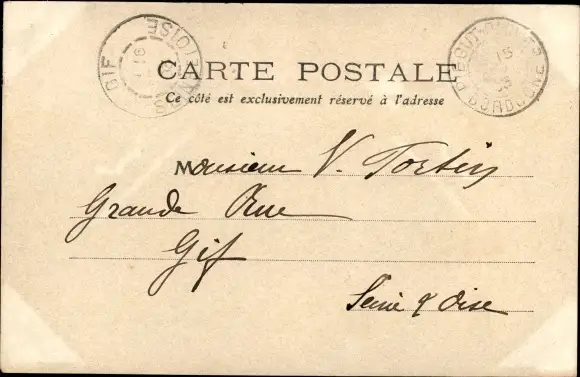 GIF SEINE-ET-OISE
16
CARTE POSTALE
DORDOGNE
15
Ce côté est exclusivement réservé à l'adresse
Monsieur V.
Grande Rue
Gif
Seine & Oise